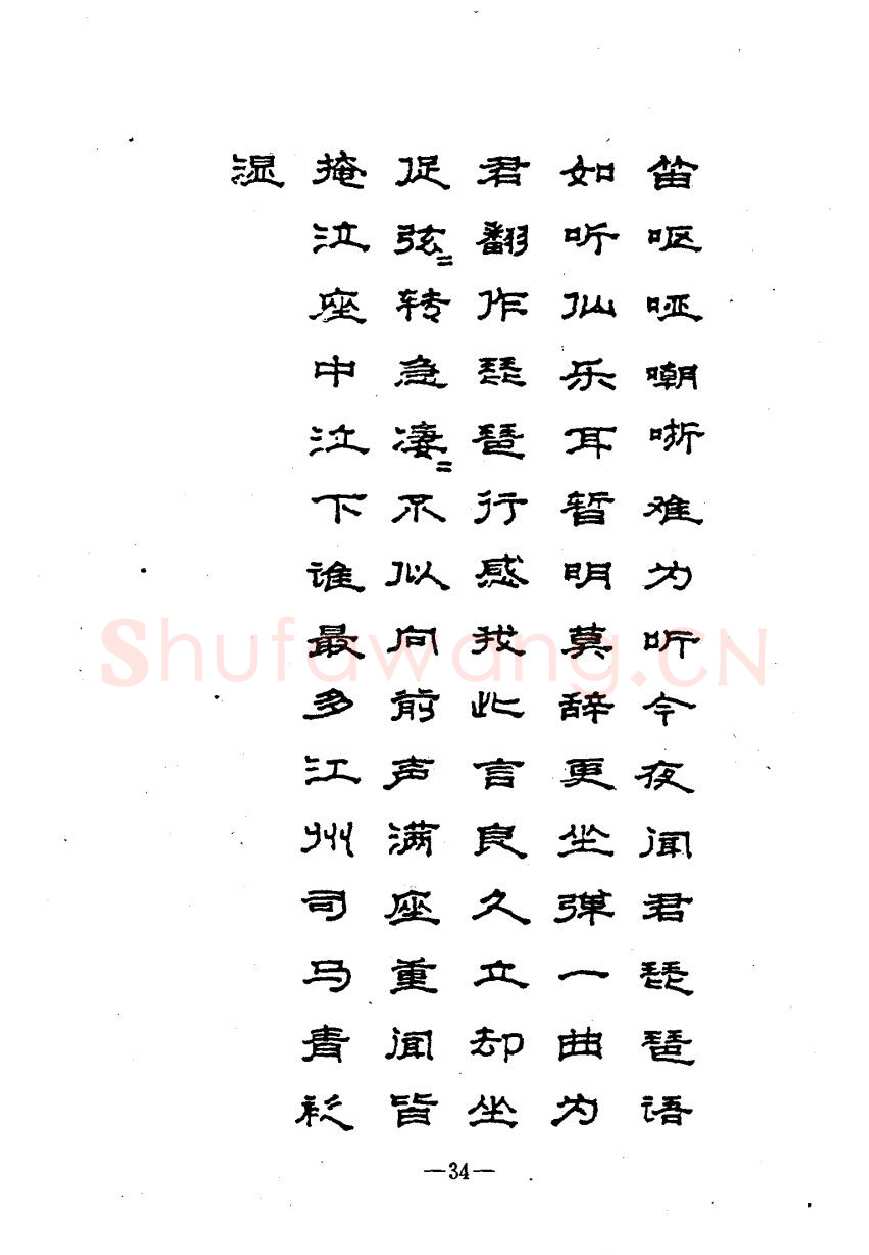 笛呕哑嘲哳难为听今夜闻君琵琶语
如听仙乐耳暂明莫辞更坐弹一曲为
君翻作琵琶行感我此言良久立却坐
促弦=转急凄=不似向前声满座重闻皆
掩泣座中泣下谁最多江州司马青衫
湿
—34—
Shufawang.CN